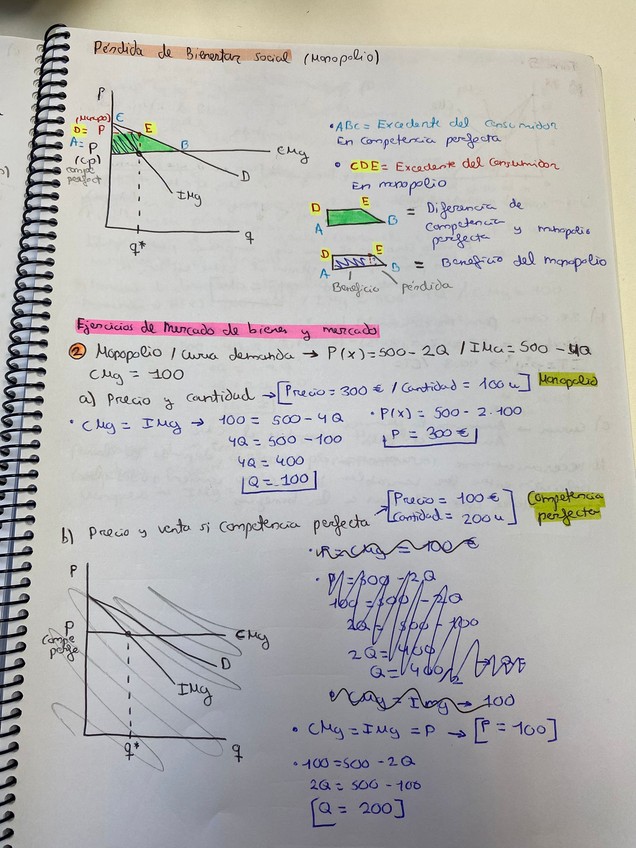 Pérdida de Bienestar social (Monopolio)
P
(Monopo) C
D = P E
A = P B CMg
(CP)
compe
perfect
D
IMg
q* q
• ABC = Excedente del consumidor
En competencia perfecta
• CDE = Excedente del consumidor
En monopolio
D E
A B = Diferencia de
competencia y monopolio
perfecta
D E
A B = Beneficio del monopolio
Beneficio pérdida
Ejercicios de Mercado de bienes y mercado
② Monopolio / Curva demanda → P(x) = 500 - 2Q / IMa = 500 - 4Q
CMg = 100
a) Precio y cantidad → [Precio = 300 € / Cantidad = 100 u] Monopolio
• CMg = IMg → 100 = 500 - 4Q • P(x) = 500 - 2·100
4Q = 500 - 100 P = 300 €
4Q = 400
Q = 100
b) Precio y venta si competencia perfecta → [Precio = 100 € Cantidad = 200 u] Competencia perfecta
P
P
Compe
perfe
CMg
D
IMg
q* q
• CMg = IMg = P → [P = 100]
• 100 = 500 - 2Q
2Q = 500 - 100
[Q = 200]